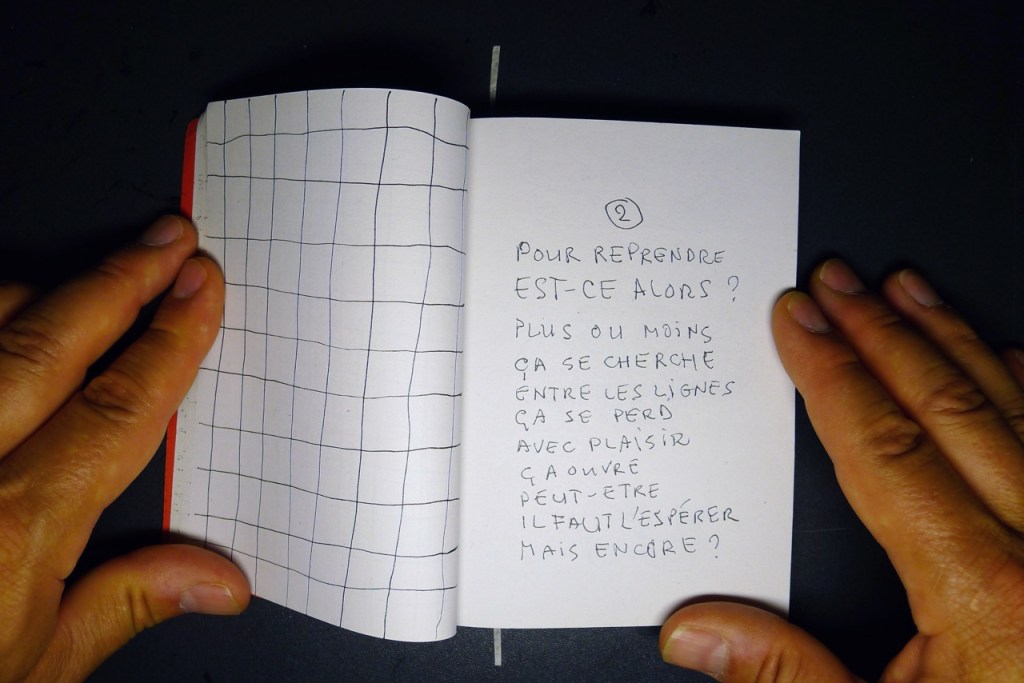 2
POUR REPRENDRE
EST-CE ALORS ?
PLUS OU MOINS
ÇA SE CHERCHE
ENTRE LES LIGNES
ÇA SE PERD
AVEC PLAISIR
ÇA OUVRE
PEUT-ETRE
IL FAUT L'ESPÉRER
MAIS ENCORE ?